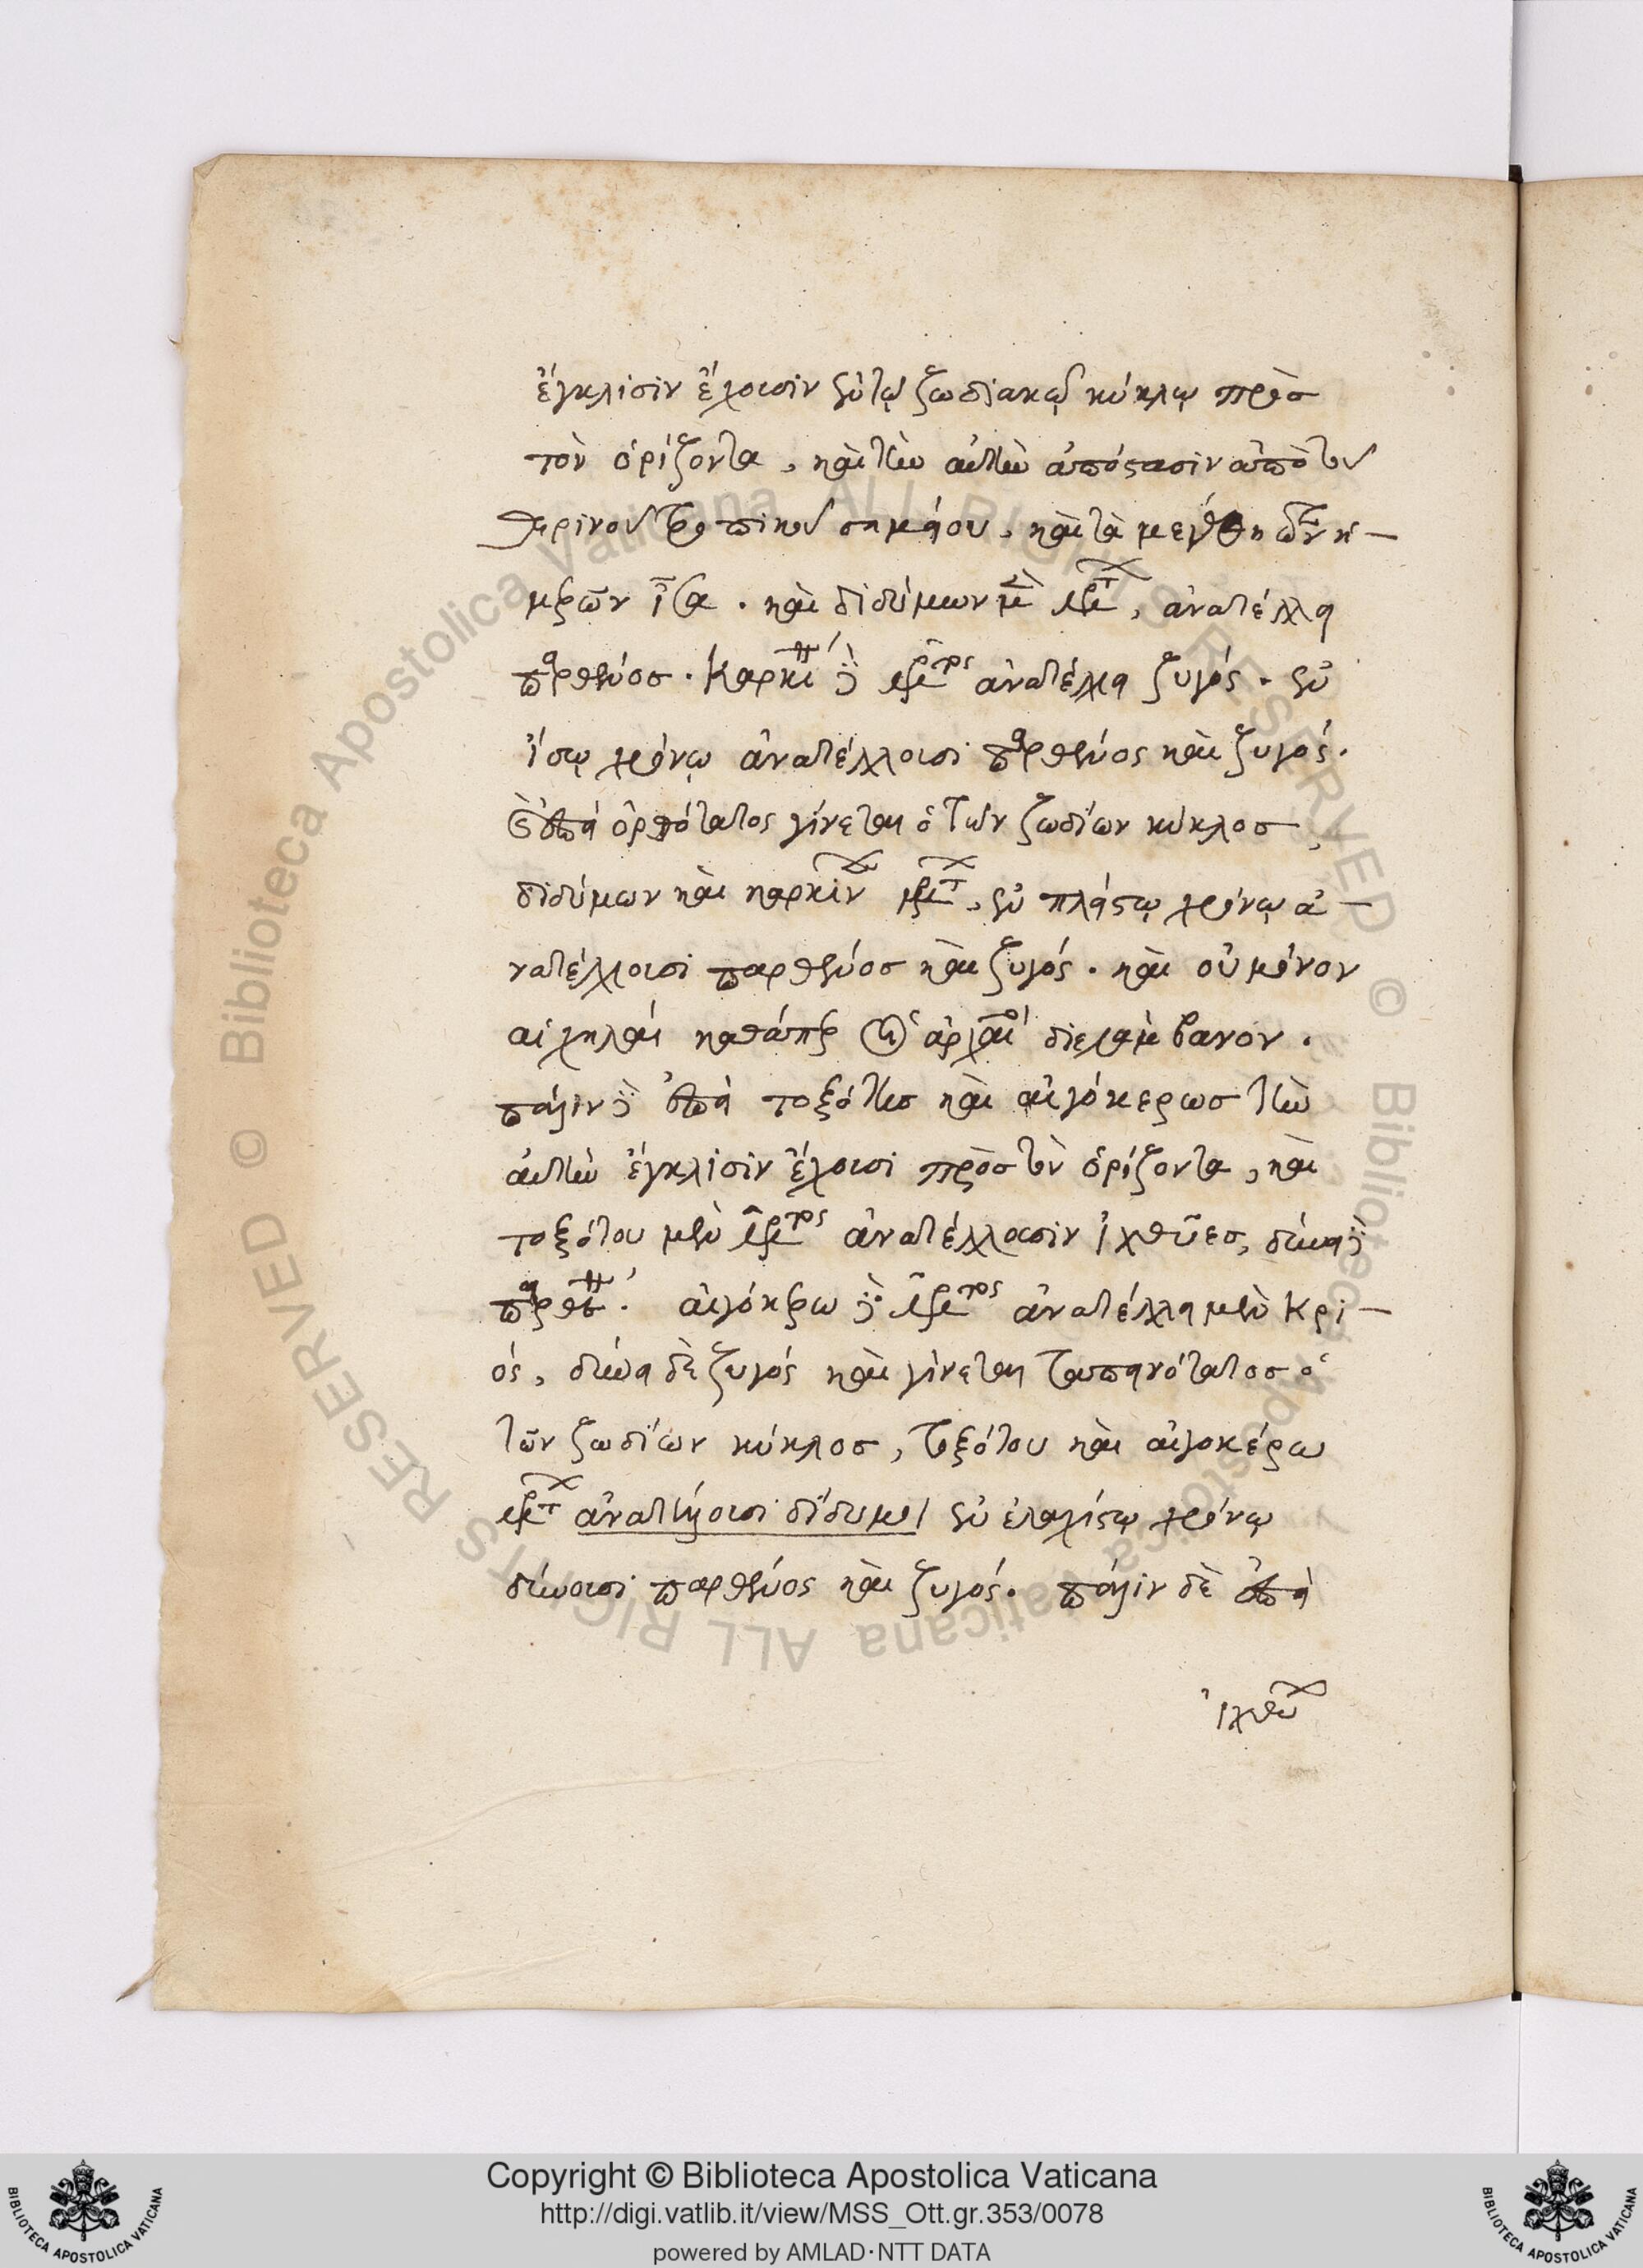 ἔγκλισιν ἔχουσιν ἐν τῷ ζωδιακῷ κύκλῳ πρὸς
τὸν ὁρίζοντα, καὶ τὴν αὐτὴν ἀπόστασιν ἀπὸ τοῦ
θερινοῦ τροπικοῦ σημείου, καὶ τὰ μεγέθη τῶν ἡ-
μερῶν ἴσα. καὶ διδύμων μὲν, ἀνατέλλει
παρθένος. καρκίνου δὲ ἀνατέλλει ζυγός. ἐν
ἴσῳ χρόνῳ ἀνατέλλουσι παρθένος καὶ ζυγός.
ἐπεὶ ὀρθότατος γίνεται ὁ τῶν ζωδίων κύκλος
διδύμων καὶ καρκίνου, ἐν πλείστῳ χρόνῳ ἀ-
νατέλλουσι παρθένος καὶ ζυγός. καὶ οὐ μόνον
αἱ χηλαί καθάπερ οἱ ἀρχαῖοι διελάμβανον.
πάλιν δὲ ἐπεὶ τοξότης καὶ αἰγόκερως τὴν
αὐτὴν ἔγκλισιν ἔχουσι πρὸς τὸν ὁρίζοντα, καὶ
τοξότου μὲν ἀνατέλλουσιν ἰχθύες, δύνει δὲ
παρθένος. αἰγόκερω δὲ ἀνατέλλει μὲν κρι-
ός, δύνει δὲ ζυγός καὶ γίνεται ταπεινότατος ὁ
τῶν ζωδίων κύκλος, τοξότου καὶ αἰγοκέρω
ἐν ἐλαχίστῳ χρόνῳ
δύνουσι παρθένος καὶ ζυγός. πάλιν δὲ ἐπεὶ
ἰχθύ
Copyright © Biblioteca Apostolica Vaticana
http://digi.vatlib.it/view/MSS_Ott.gr.353/0078
powered by AMLAD·NTT DATA
BIBLIOTECA APOSTOLICA VATICANA
BIBLIOTECA APOSTOLICA VATICANA
© Biblioteca Apostolica Vaticana ALL RIGHTS RESERVED © Biblioteca Apostolica Vaticana ALL RIGHTS RESERVED